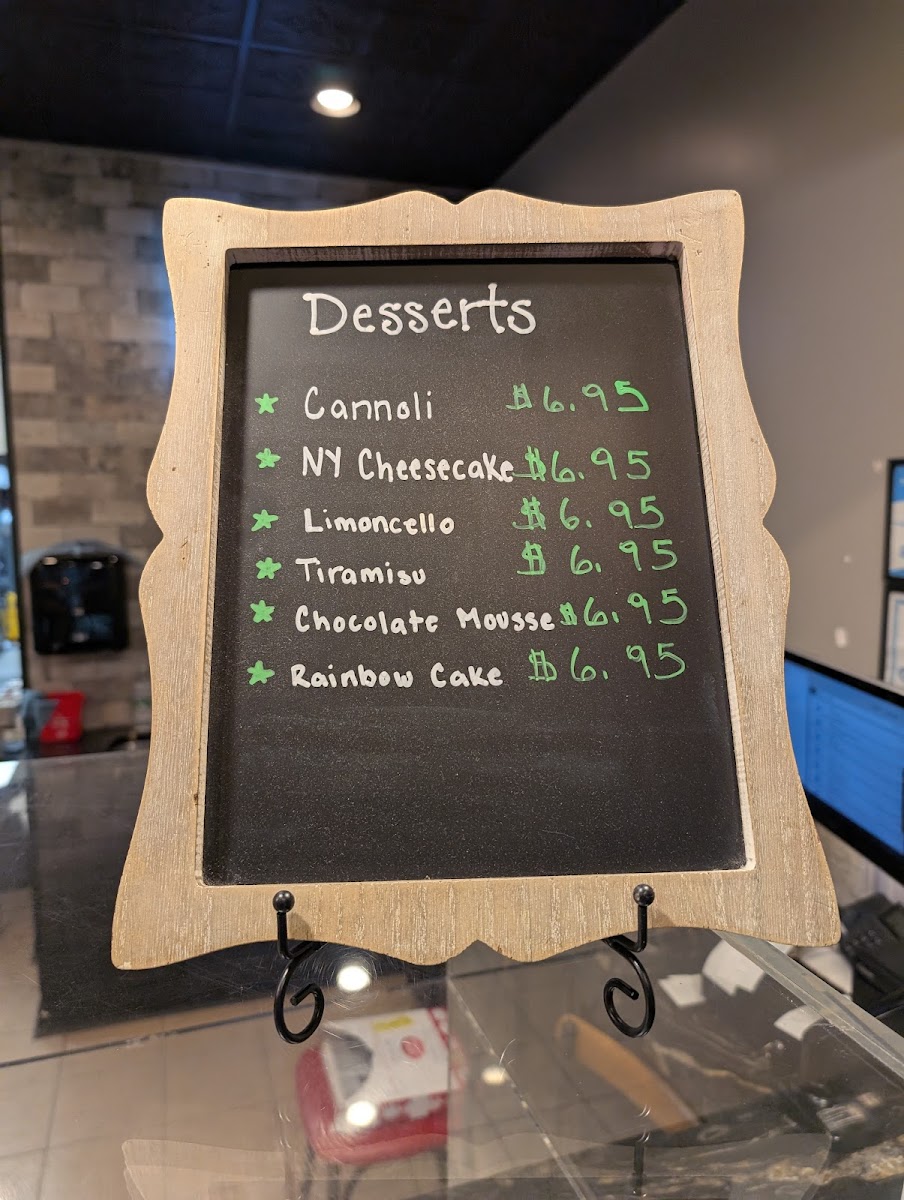 Desserts
Cannoli $6.95
NY Cheesecake $6.95
Limoncello $6.95
Tiramisu $6.95
Chocolate Mousse $6.95
Rainbow Cake $6.95